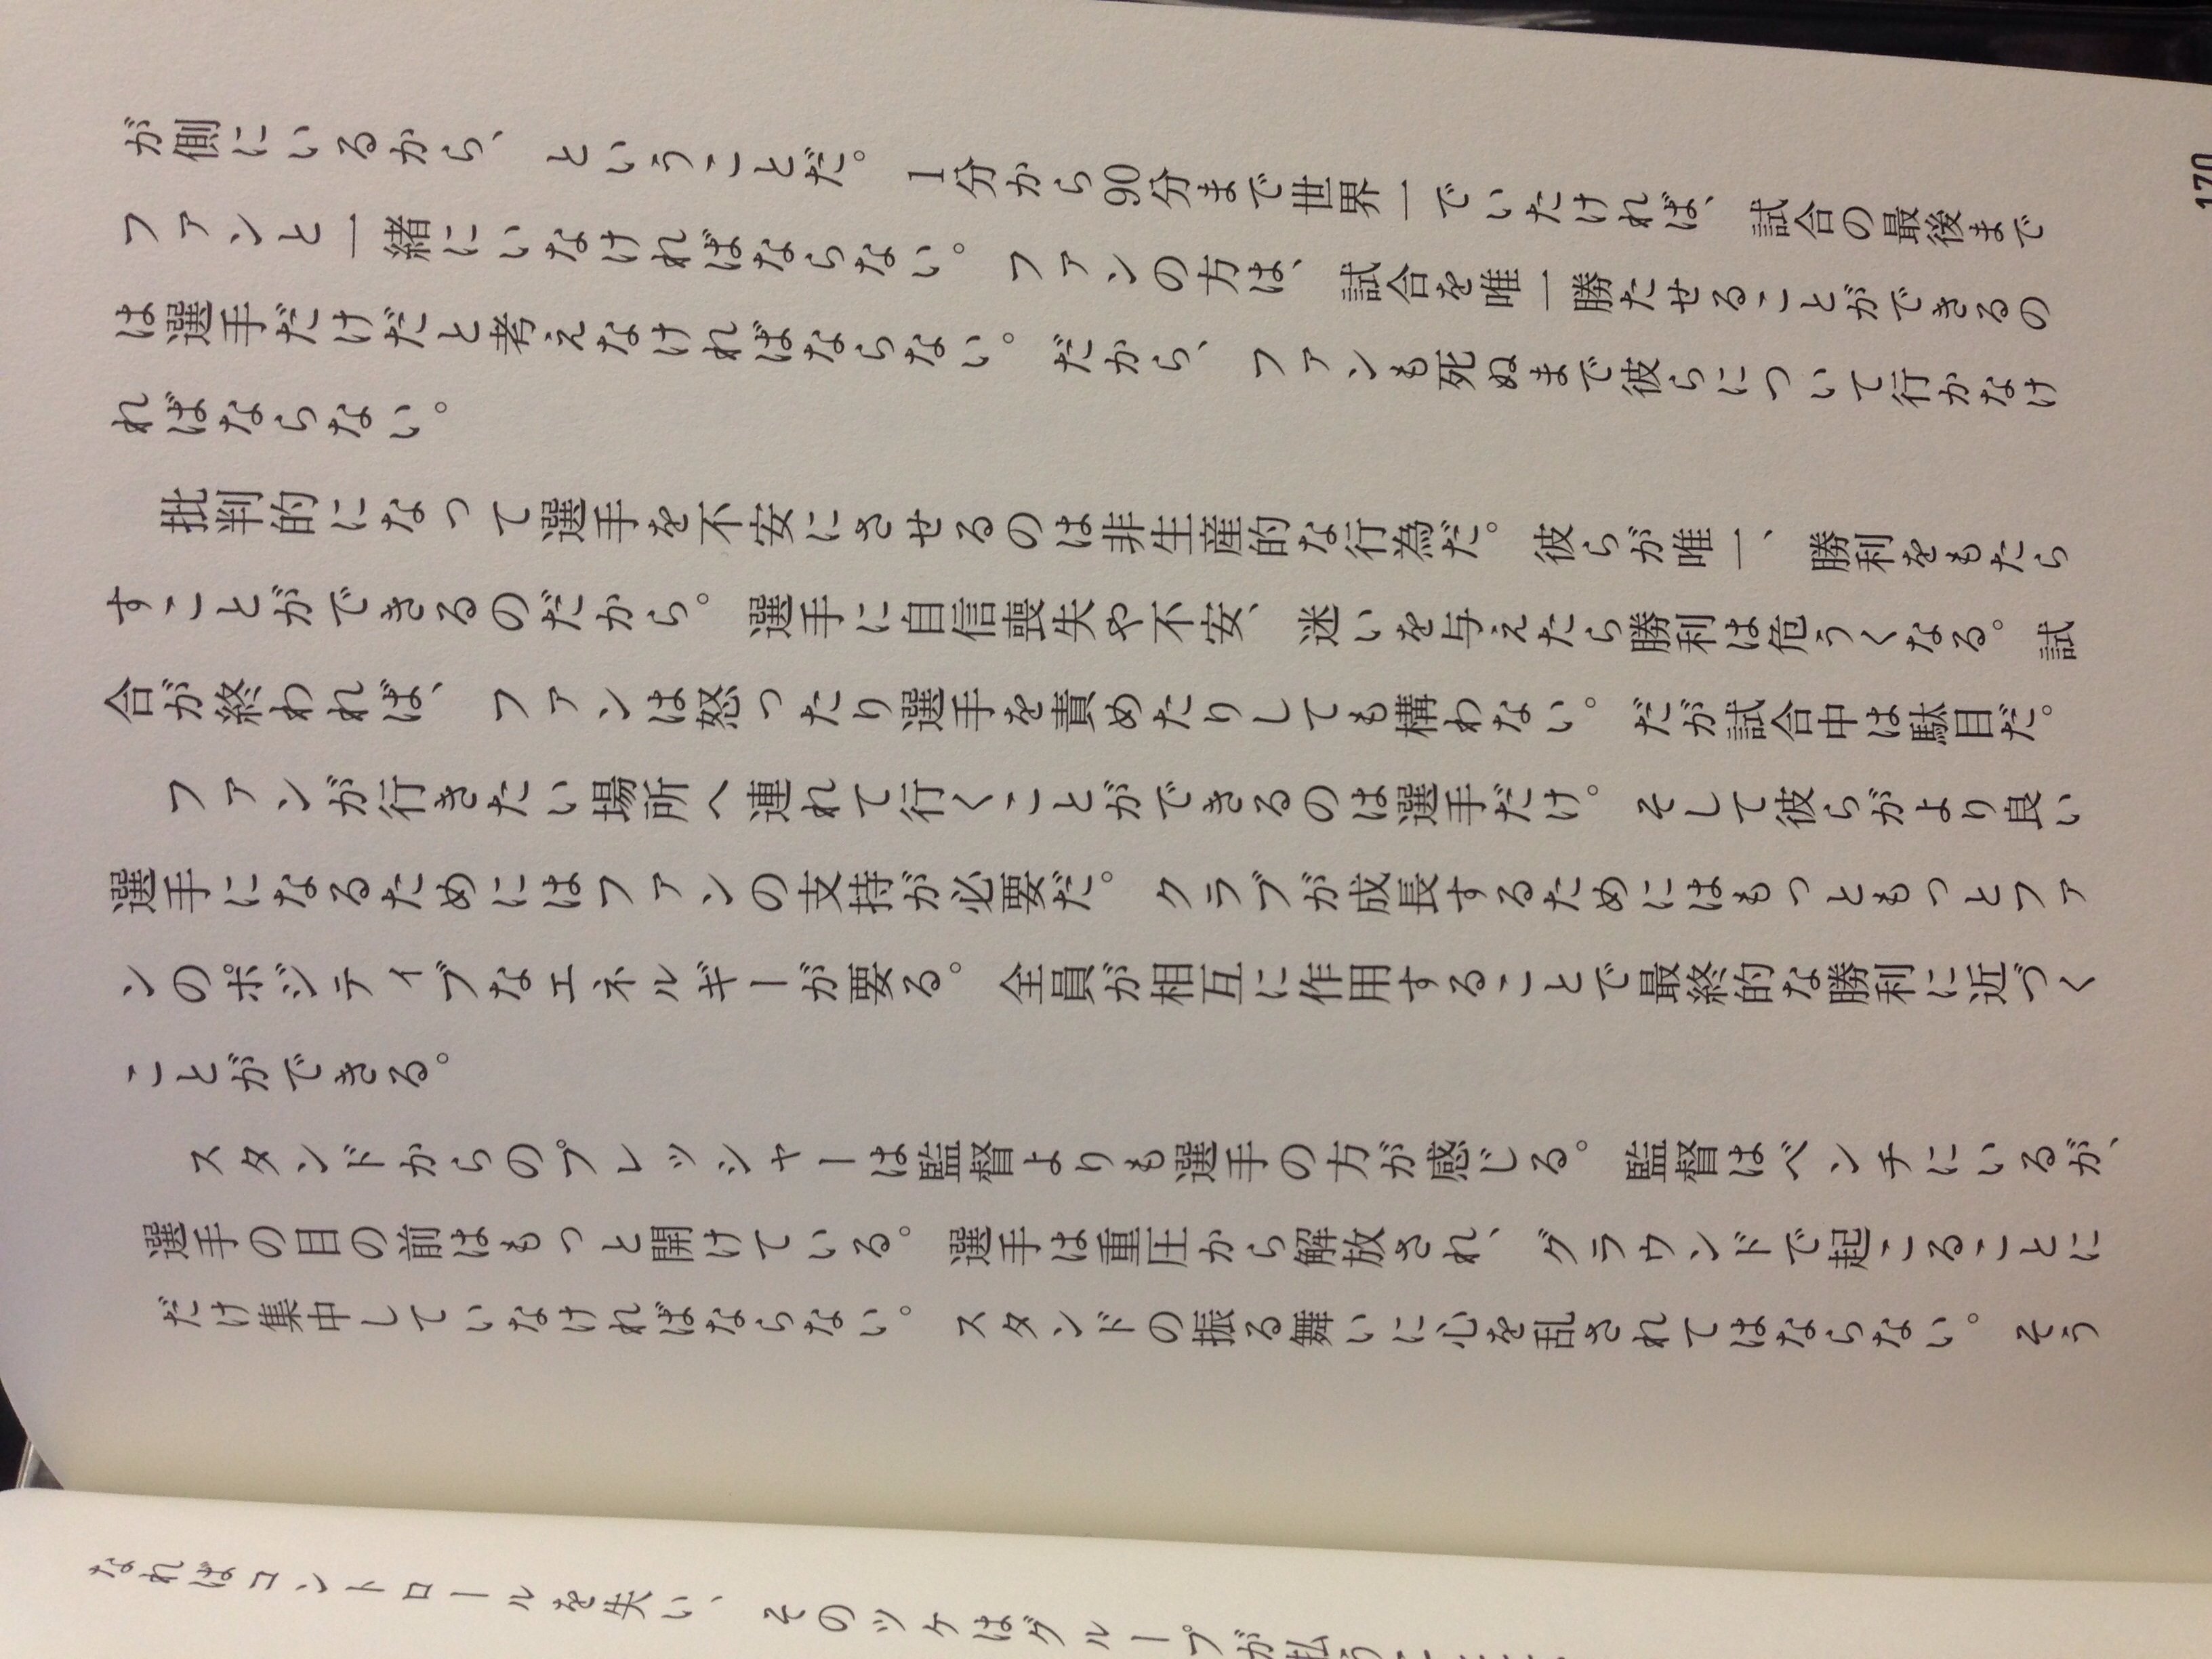 が側にいるから、ということだ。1分から90分まで世界一でいたければ、試合の最後まで
ファンと一緒にいなければならない。ファンの方は、試合を唯一勝たせることができるの
は選手だけだと考えなければならない。だから、ファンも死ぬまで彼らについて行かなけ
ればならない。
批判的になって選手を不安にさせるのは非生産的な行為だ。彼らが唯一、勝利をもたら
すことができるのだから。選手に自信喪失や不安、迷いを与えたら勝利は危うくなる。試
合が終われば、ファンは怒ったり選手を責めたりしても構わない。だが試合中は駄目だ。
ファンが行きたい場所へ連れて行くことができるのは選手だけ。そして彼らがより良い
選手になるためにはファンの支持が必要だ。クラブが成長するためにはもっともっとファ
ンのポジティブなエネルギーが要る。全員が相互に作用することで最終的な勝利に近づく
ことができる。
スタンドからのプレッシャーは監督よりも選手の方が感じる。監督はベンチにいるが、
選手の目の前はもっと開けている。選手は重圧から解放され、グラウンドで起こることに
だけ集中していなければならない。スタンドの振る舞いに心を乱されてはならない。そう
170
なればコントロールを失い、そのツケはグループが払う